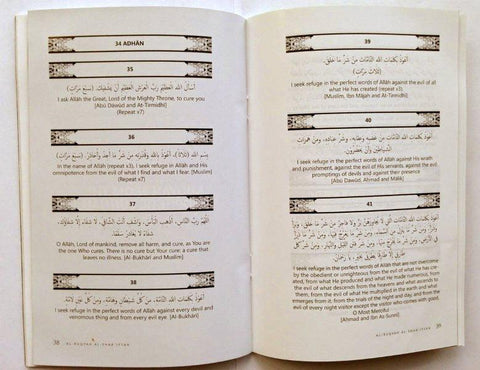 34 ADHĀN
35
أَسْأَلُ اللَّهَ الْعَظِيمَ رَبَّ الْعَرْشِ الْعَظِيمِ أَنْ يَشْفِيَكَ. (سَبْعَ مَرَّاتٍ)
I ask Allāh the Great, Lord of the Mighty Throne, to cure you
[Abū Dāwūd and At-Tirmidhī]
(Repeat x7)
36
بِسْمِ اللَّهِ (ثَلَاثًا)، أَعُوذُ بِاللَّهِ وَقُدْرَتِهِ مِنْ شَرِّ مَا أَجِدُ وَأُحَاذِرُ. (سَبْعَ مَرَّاتٍ)
In the name of Allāh (repeat x3), I seek refuge in Allāh and His
omnipotence from the evil of what I find and what I fear. [Muslim]
(Repeat x7)
37
اللَّهُمَّ رَبَّ النَّاسِ، أَذْهِبِ الْبَأْسَ، وَاشْفِ أَنْتَ الشَّافِي، لَا شِفَاءَ إِلَّا شِفَاؤُكَ،
شِفَاءً لَا يُغَادِرُ سَقَمًا.
O Allāh, Lord of mankind, remove all harm, and cure, as You are
the one Who cures. There is no cure but Your cure: a cure that
leaves no illness. [Al-Bukhārī and Muslim]
38
أَعُوذُ بِكَلِمَاتِ اللَّهِ التَّامَّةِ، مِنْ كُلِّ شَيْطَانٍ وَهَامَّةٍ، وَمِنْ كُلِّ عَيْنٍ لَامَّةٍ.
I seek refuge in the perfect words of Allāh against every devil and
venomous thing and from every evil eye. [Al-Bukhārī]
38
AL-RUQYAH AL-SHAR'IYYAH
39
أَعُوذُ بِكَلِمَاتِ اللَّهِ التَّامَّاتِ مِنْ شَرِّ مَا خَلَقَ.
(ثَلَاثَ مَرَّاتٍ)
I seek refuge in the perfect words of Allāh against the evil of all
what He has created (repeat x3).
[Muslim, Ibn Mājah and At-Tirmidhī]
40
أَعُوذُ بِكَلِمَاتِ اللَّهِ التَّامَّاتِ مِنْ غَضَبِهِ وَعِقَابِهِ، وَشَرِّ عِبَادِهِ، وَمِنْ هَمَزَاتِ
الشَّيَاطِينِ وَأَنْ يَحْضُرُونِ.
I seek refuge in the perfect words of Allāh against His wrath
and punishment, against the evil of His servants, and against the evil
promptings of devils and against their presence
[Abū Dāwūd, Ahmad and Mālik]
41
أَعُوذُ بِكَلِمَاتِ اللَّهِ التَّامَّاتِ الَّتِي لَا يُجَاوِزُهُنَّ بَرٌّ وَلَا فَاجِرٌ
I seek refuge in the perfect words of Allāh that are not overcome
by the obedient or unrighteous from the evil of what He has cre-
ated, from what He produced and what He made to increase; from
the evil of what descends from the heaven, and what ascends to it;
from the evil of what He multiplied in the earth and what
emerges from it; from the trials of the night and day, and from the
evil of every night visitor except the visitor who comes with good,
O Most Merciful
[Ahmad and Ibn As-Sunni]
AL-RUQYAH AL-SHAR'IYYAH
39